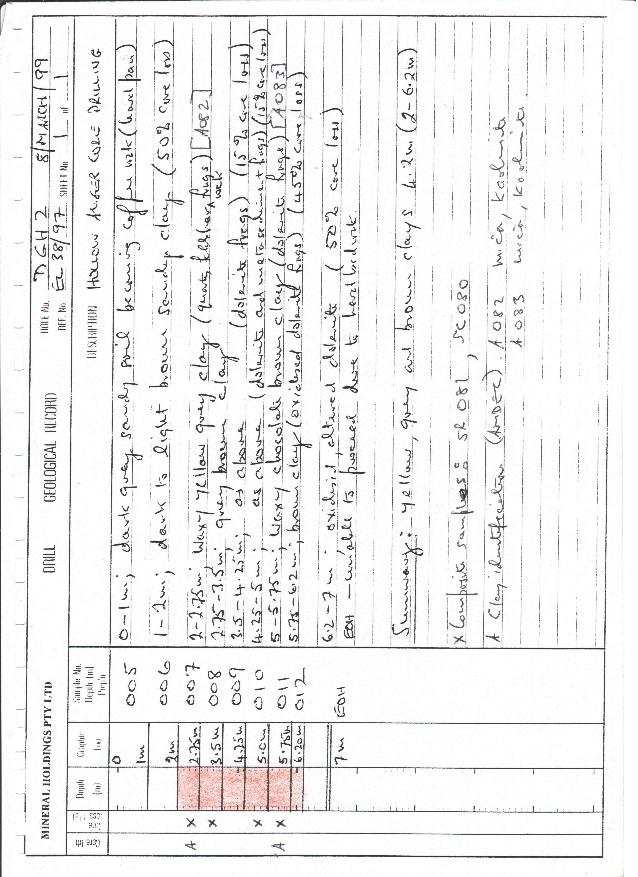 MINERAL HOLDINGS PTY LTD
DRILL GEOLOGICAL RECORD
HOLE No. DGH 2 8/MARCH/99
REF. No. EL 38/97 SHEET No. 1 of 1
Core lith Core loss Depth (m) Graphic Log Sample No. DESCRIPTION HOLLOW AUGER CORE DRILLING
0
005 0-1m; dark grey sandy soil becoming coffee rock (hard pan)
1m
006 1-2m; dark to light brown sandy clay (50% core loss)
2m
A X 2.75m 007 2-2.75m; waxy yellow grey clay (quartz, frags) [A082]
X 3.5m 008 2.75-3.5m; grey brown clay
4.25m 009 3.5-4.25m; as above (dolerite frags) (15% core loss)
X 5.0m 010 4.25-5m; as above (dolerite and metasediment frags) (15% core loss)
A X 5.75m 011 5-5.75m; waxy chocolate brown clay (dolerite frags) [A083]
6.20m 012 5.75-6.2m; brown clay (oxidised dolerite frags) (45% core loss)
6.2-7m; oxidised, altered dolerite (50% core loss)
7m EOH EOH - unable to proceed due to hard bedrock.
Summary:- yellow, grey and brown clays 4.2m (2-6.2m)
X Composite samples: SC081, SC080
A Clay identification (AMDEC). A082 mica, kaolinite
A083 mica, kaolinite.